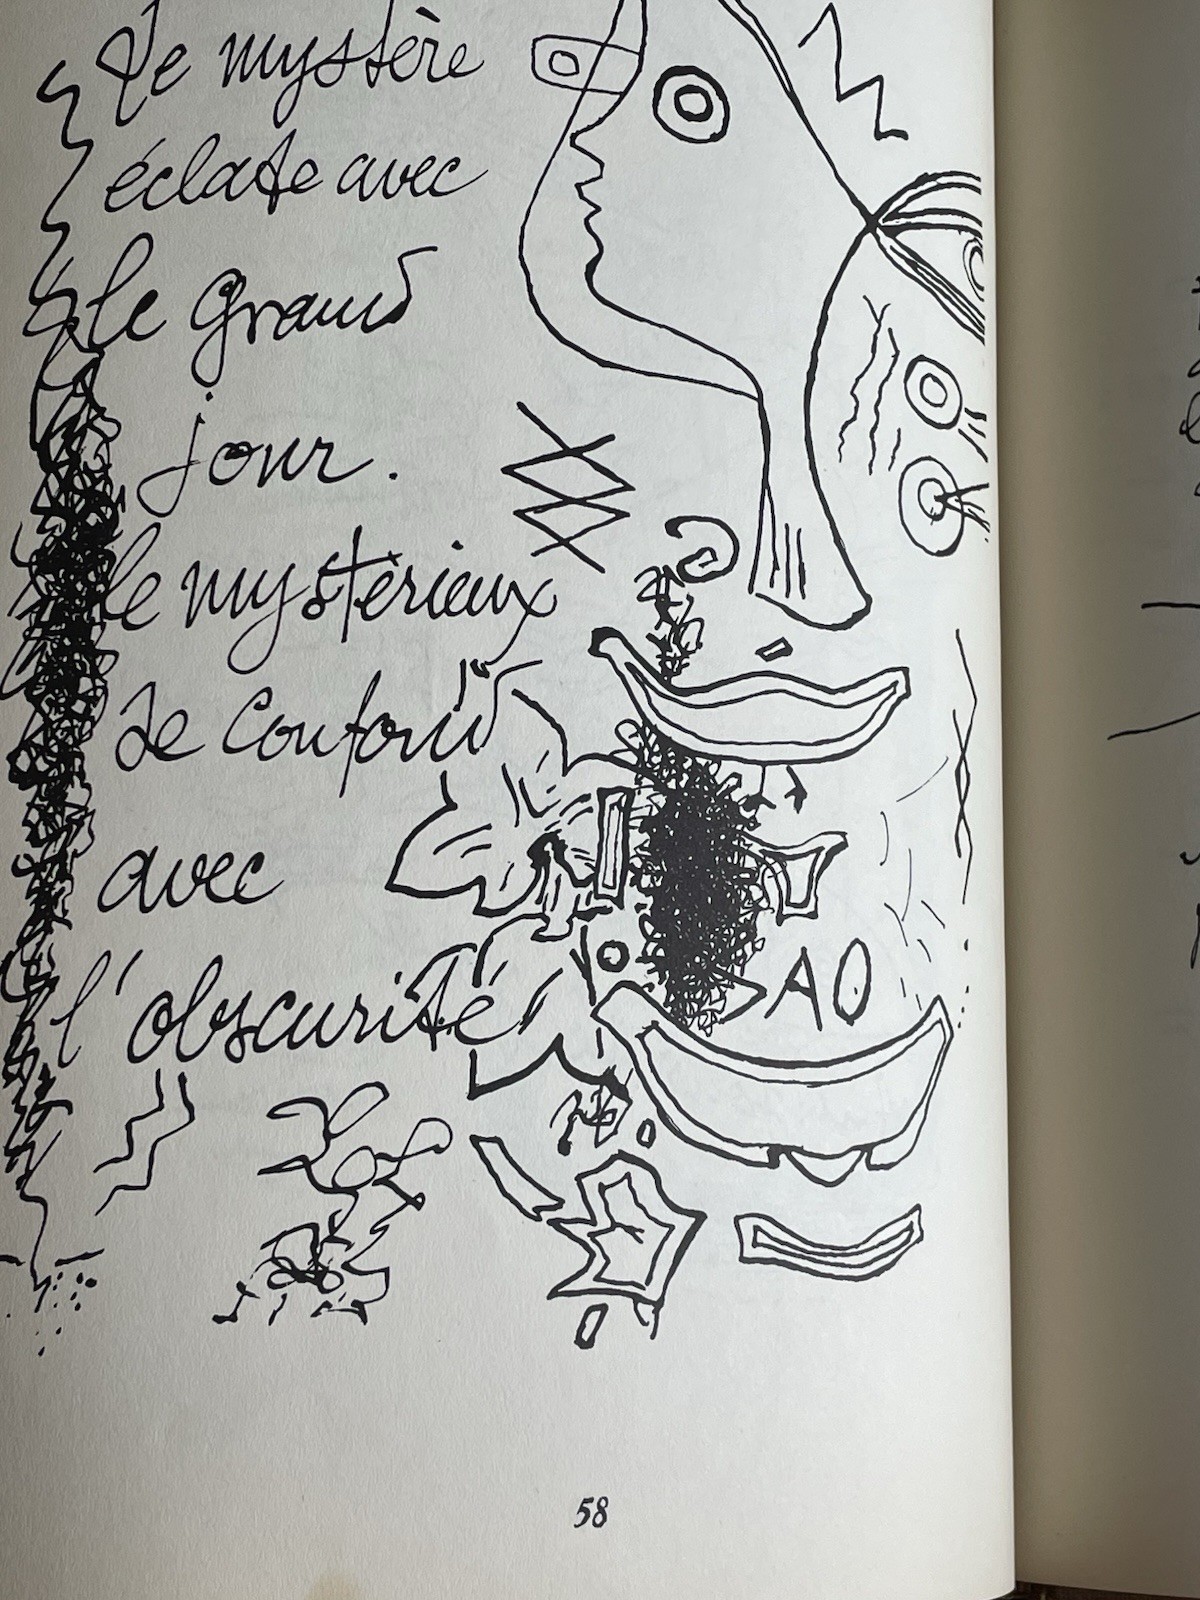 Le mystère
éclate avec
le grand
jour.
le mystérieux
se confond
avec
l'obscurité
AO
58